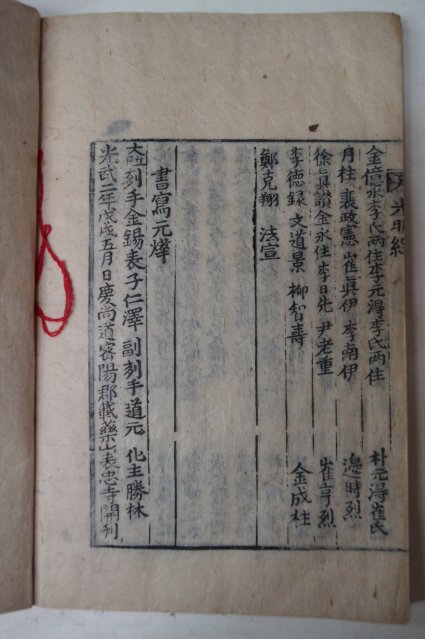 光明經
金億永李氏兩住李元淂李氏兩住 朴元淂崔氏
月桂 裵政憲 崔眞伊 李南伊 邉時烈
徐眞諧金永住李日先 尹老重 崔亨烈
李德録 文道景 柳智壽 金成柱
鄭克翔 法宣
書寫元燁
刻手金錫表子仁澤 副刻手道元 化主勝林
光武二年戊戌五月日慶尚道密陽郡載藥山表忠寺開刊